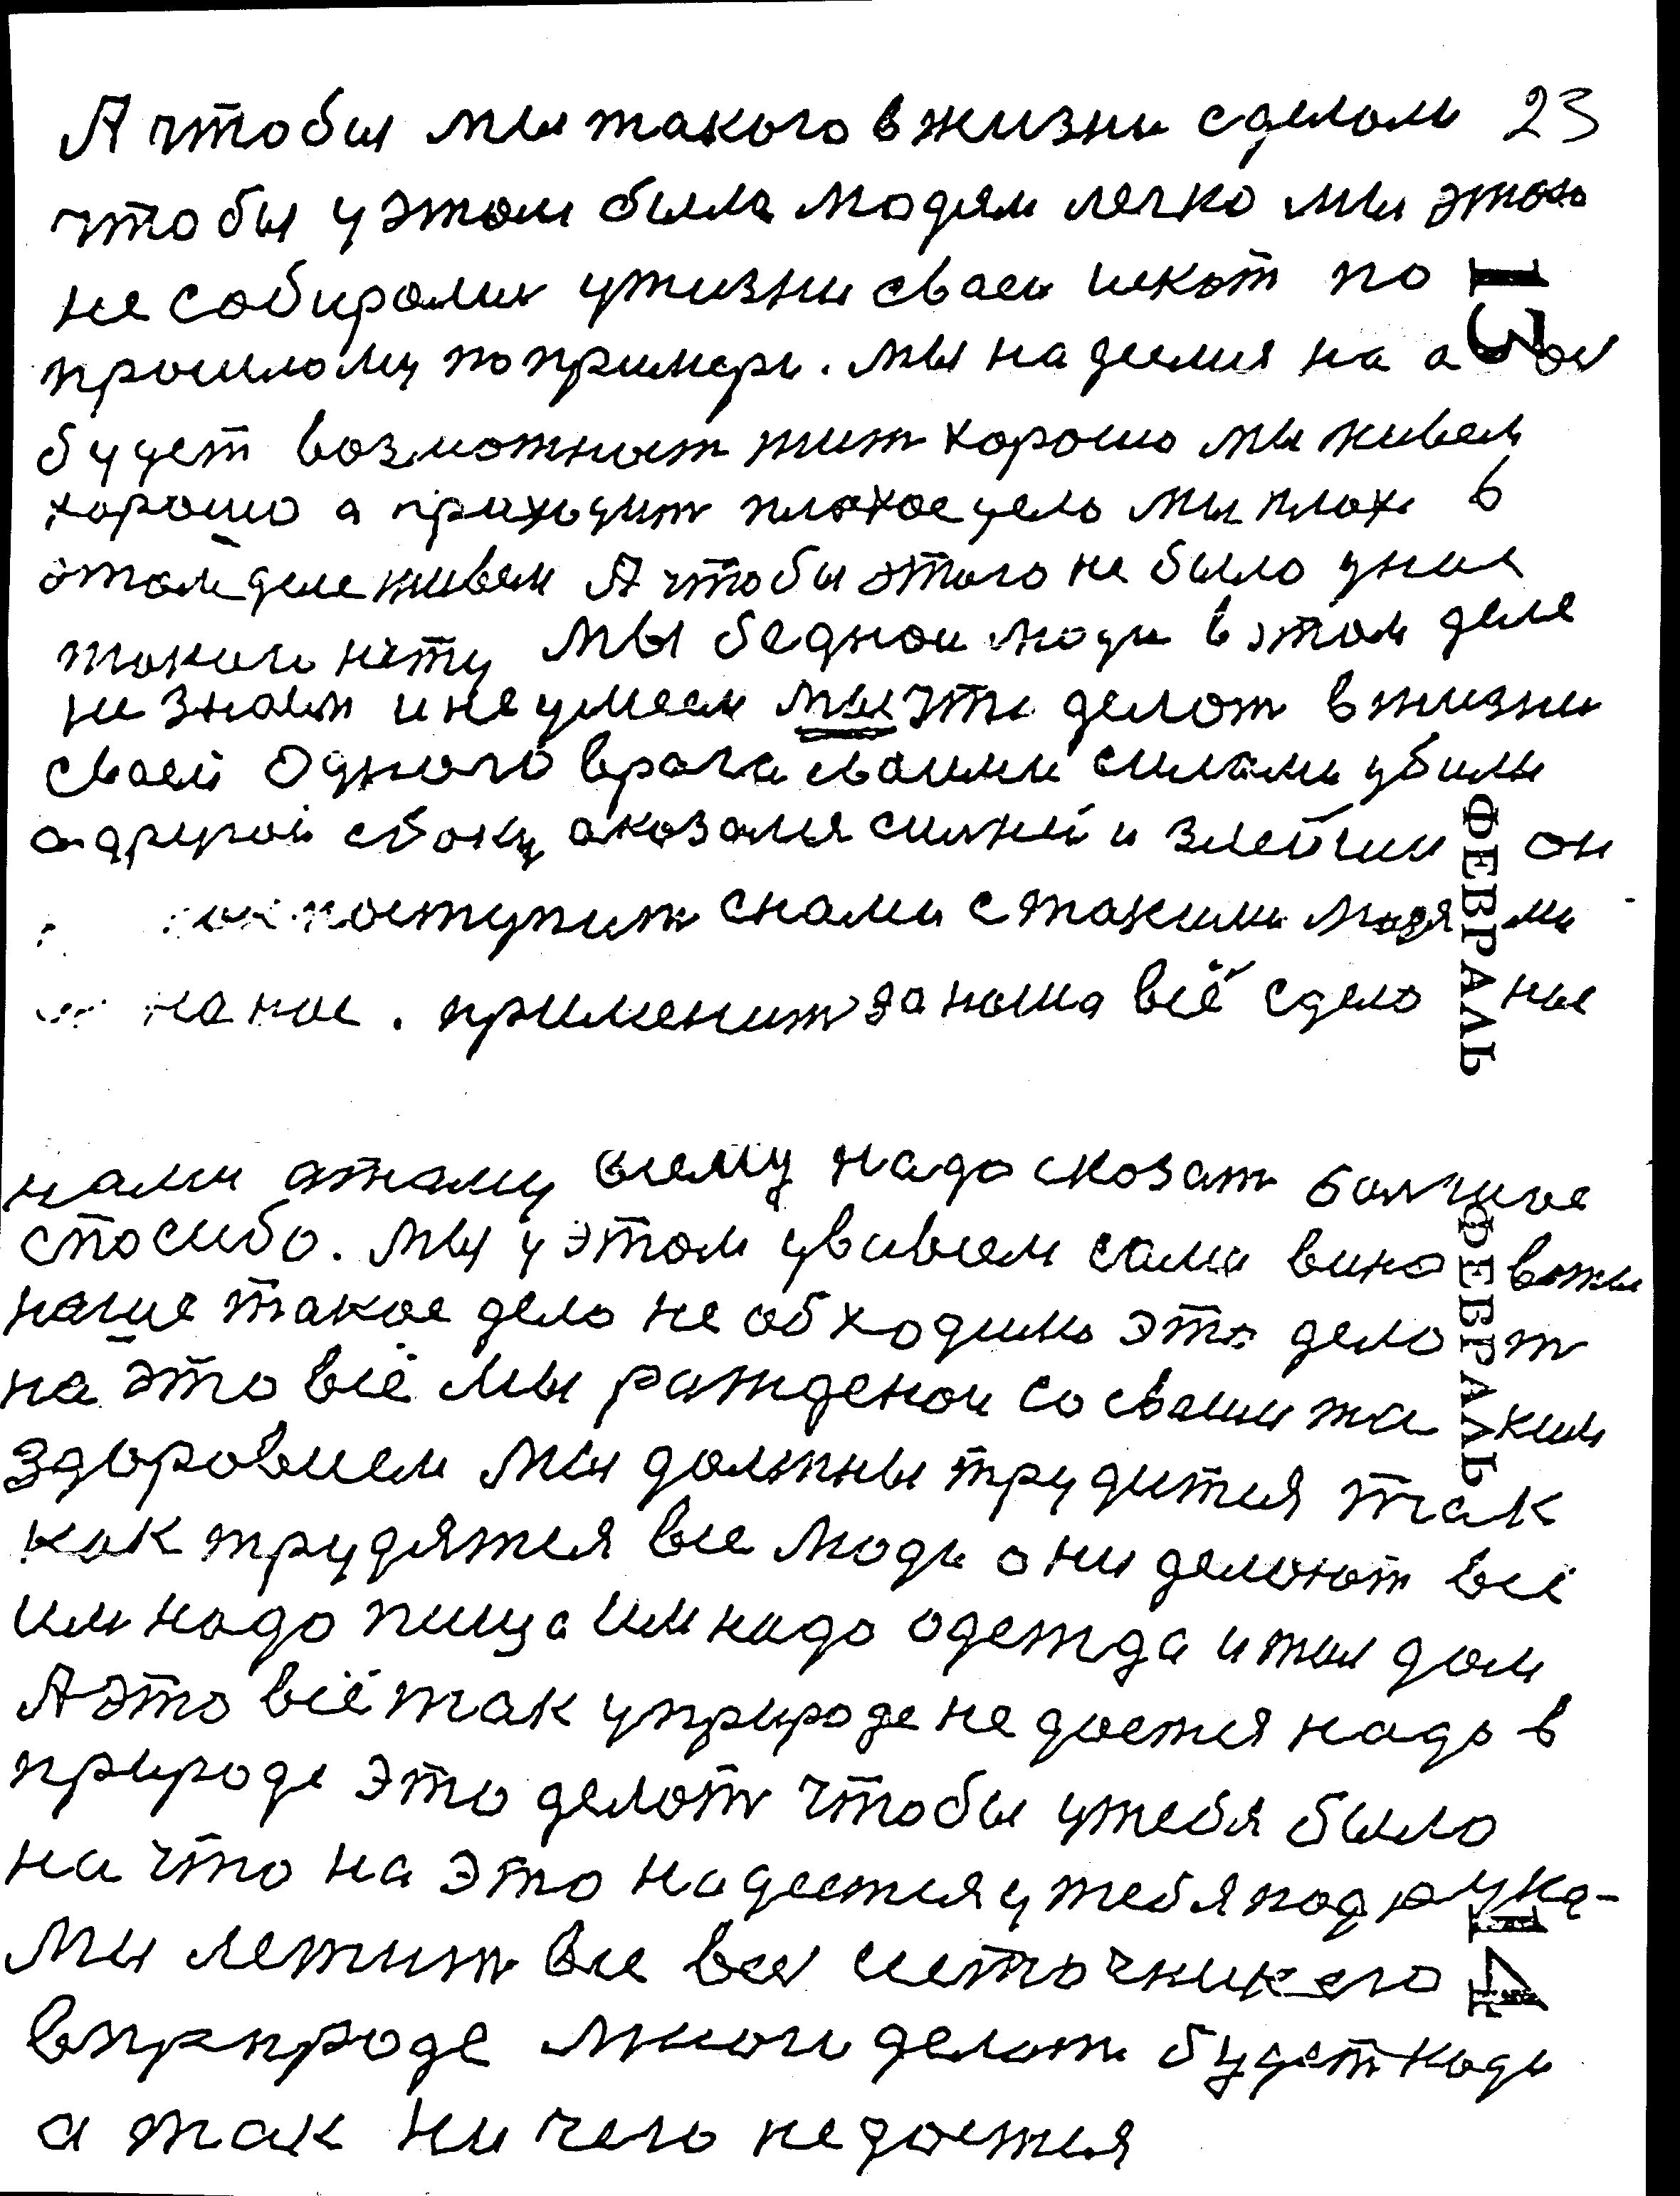 А чтобы мы такого в жизни сделали 23
чтобы у этом была людям легко мы этого
не собирали у жизни сваеи искат по
прошлому по примеры. мы надеимся на а
будет возможност жит хорошо мы живем
хорошо а приходит плохое дело мы плохо в
этом деле живем А чтобы этого не было у нас
такого нету мы бедное люди в этом деле
не знаем и не умеем мы что делат в жизни
сваей Одного врага сваими силами убили
а другой сбоку аказался силней и злейший он
поступит с нами с такими людями
на нас. применит за наша всё сдела ное
нами этаму всему надо сказат балшое
спосибо. мы у этом увивем сами вино ваты
наше такое дело не обходимо это дела т
на это всё мы ражденои со сваим та ким
здоровием мы должны трудится так
как трудятся все люди они делают всё
им надо пища им надо одежда и жил дом
А это всё так у природе не дается надо в
природе это делат чтобы у тебя было
на что на это надеется у тебя под рука-
ми лежит все все источник его
в природе многи делат будет надо
а так ни чего не дается
13
ФЕВРАЛЬ
ФЕВРАЛЬ
14